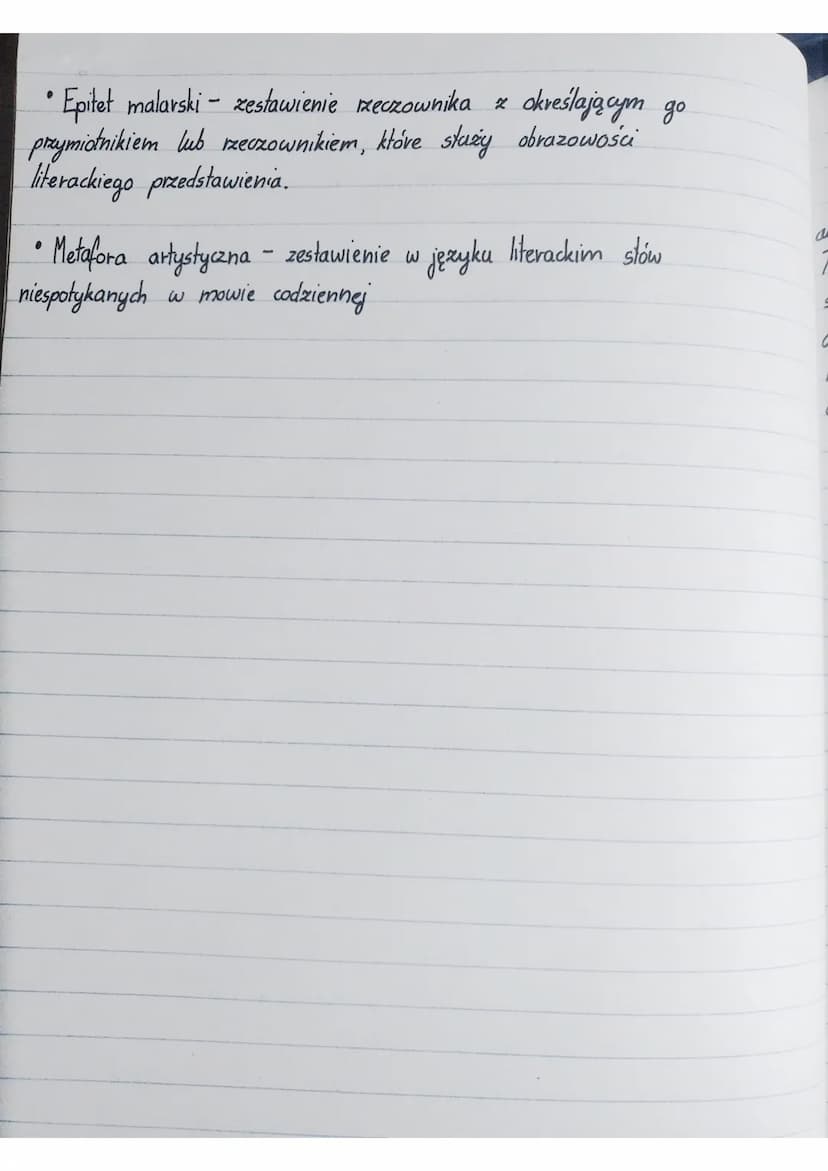 • Epitet malarski - zestawienie rzeczownika z określającym go
przymiotnikiem lub rzeczownikiem, które służy obrazowości
literackiego przedstawienia.
• Metafora artystyczna - zestawienie w języku literackim słów
niespotykanych w mowie codziennej